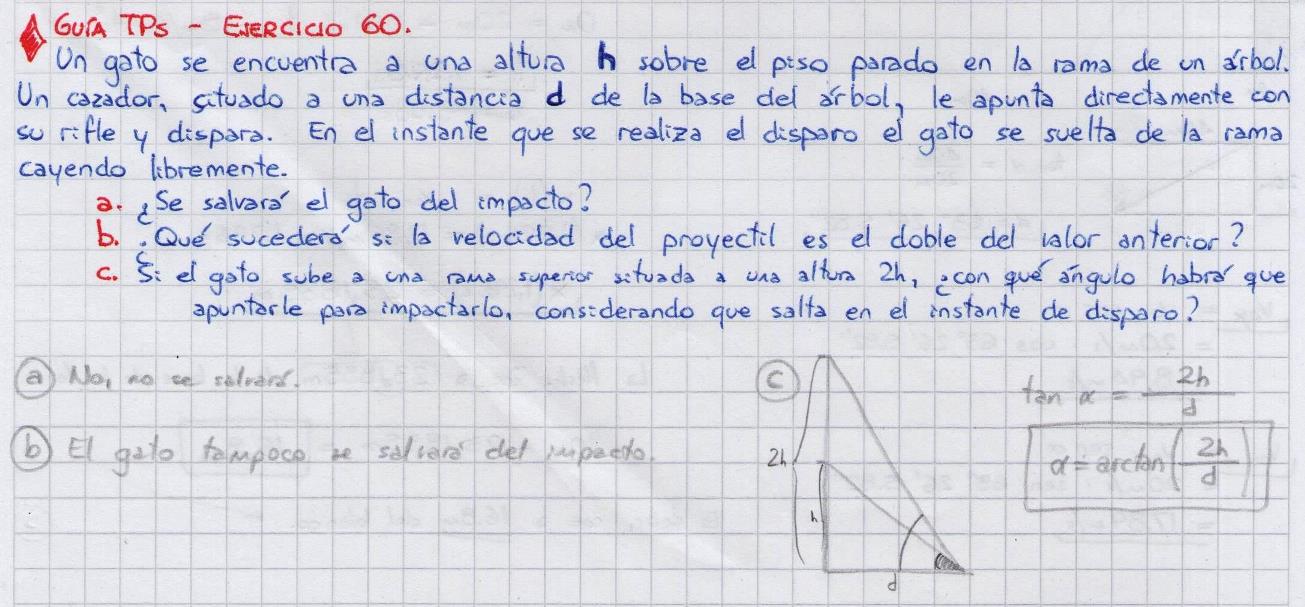 GUÍA TPs - EJERCICIO 60.
Un gato se encuentra a una altura h sobre el piso parado en la rama de un árbol.
Un cazador, situado a una distancia d de la base del árbol, le apunta directamente con
su rifle y dispara. En el instante que se realiza el disparo el gato se suelta de la rama
cayendo libremente.
a. ¿Se salvará el gato del impacto?
b. ¿Qué sucederá si la velocidad del proyectil es el doble del valor anterior?
c. Si el gato sube a una rama superior situada a una altura 2h, ¿con qué ángulo habrá que
apuntarle para impactarlo, considerando que salta en el instante de disparo?
a No, no se salvará.
b El gato tampoco se salvará del impacto.
c
2h
h
d
tan α = 2h/d
α = arctan(2h/d)